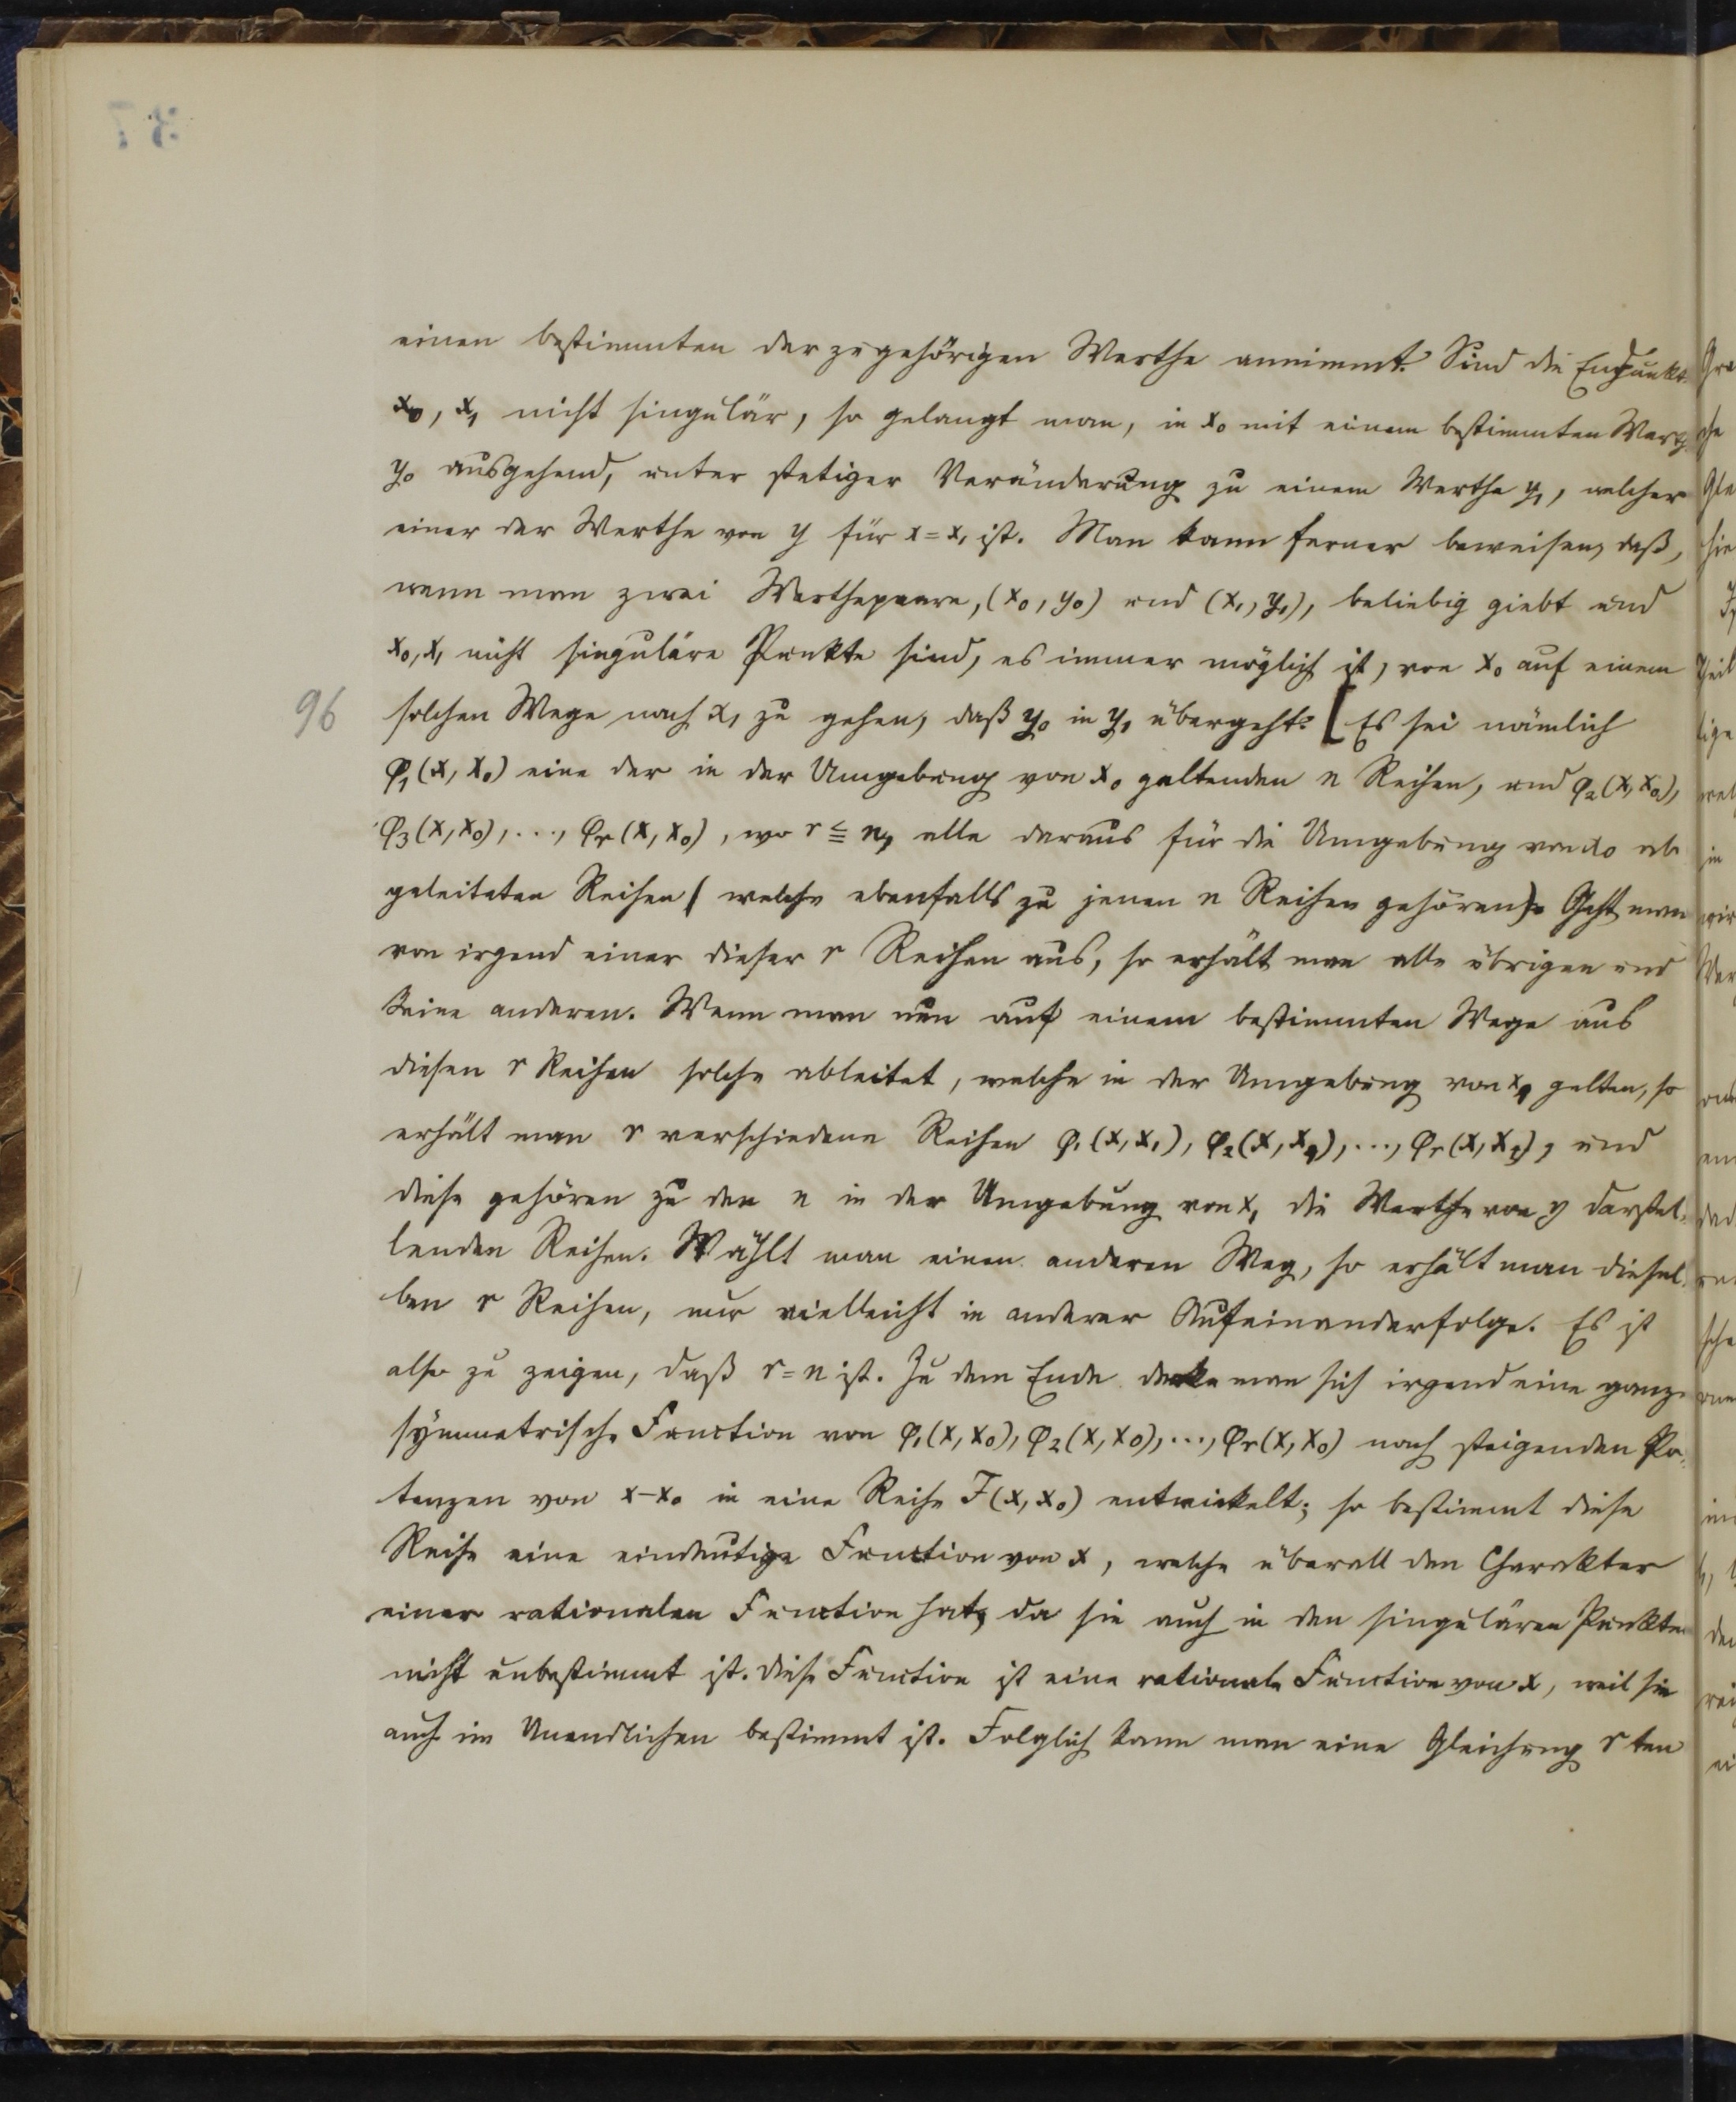 37
einen bestimmten der zugehörigen Werthe annimmt. Sind die Endpunkte
x₀, x₁ nicht singulär, so gelangt man, in x₀ mit einem bestimmten Werth
y₀ ausgehend, unter stetiger Veränderung zu einem Werthe y₁, welcher
einer der Werthe von y für x = x₁ ist. Man kann ferner beweisen, daß,
wenn man zwei Werthepaare, (x₀, y₀) und (x₁, y₁), beliebig giebt und
x₀, x₁ nicht singuläre Punkte sind, es immer möglich ist, von x₀ auf einem
96 solchen Wege nach x₁ zu gehen, daß y₀ in y₁ übergeht: [Es sei nämlich
φ₁(x, x₀) eine der in der Umgebung von x₀ geltenden n Reihen, und φ₂(x, x₀),
φ₃(x, x₀), ..., φᵣ(x, x₀), wo r ≦ n, alle daraus für die Umgebung von x₀ ab
geleiteten Reihen (welche ebenfalls zu jenen n Reihen gehören). Geht man
von irgend einer dieser r Reihen aus, so erhält man alle übrigen und
keine anderen. Wenn man nun auf einem bestimmten Wege aus
diesen r Reihen solche ableitet, welche in der Umgebung von x₁ gelten, so
erhält man r verschiedene Reihen φ₁(x, x₁), φ₂(x, x₁), ..., φᵣ(x, x₁), und
diese gehören zu den n in der Umgebung von x₁ die Werthe von y darstel-
lenden Reihen. Wählt man einen anderen Weg, so erhält man diesel-
ben r Reihen, nur vielleicht in anderer Aufeinanderfolge. Es ist
also zu zeigen, daß r = n ist. Zu dem Ende denke man sich irgend eine ganze
symmetrische Function von φ₁(x, x₀), φ₂(x, x₀), ..., φᵣ(x, x₀) nach steigenden Po-
tenzen von x-x₀ in eine Reihe F(x, x₀) entwickelt; so bestimmt diese
Reihe eine eindeutige Function von x, welche überall den Charakter
einer rationalen Function hat, da sie auch in den singulären Punkten
nicht unbestimmt ist. Diese Function ist eine rationale Function von x, weil sie
auch im Unendlichen bestimmt ist. Folglich kann man eine Gleichung r ten